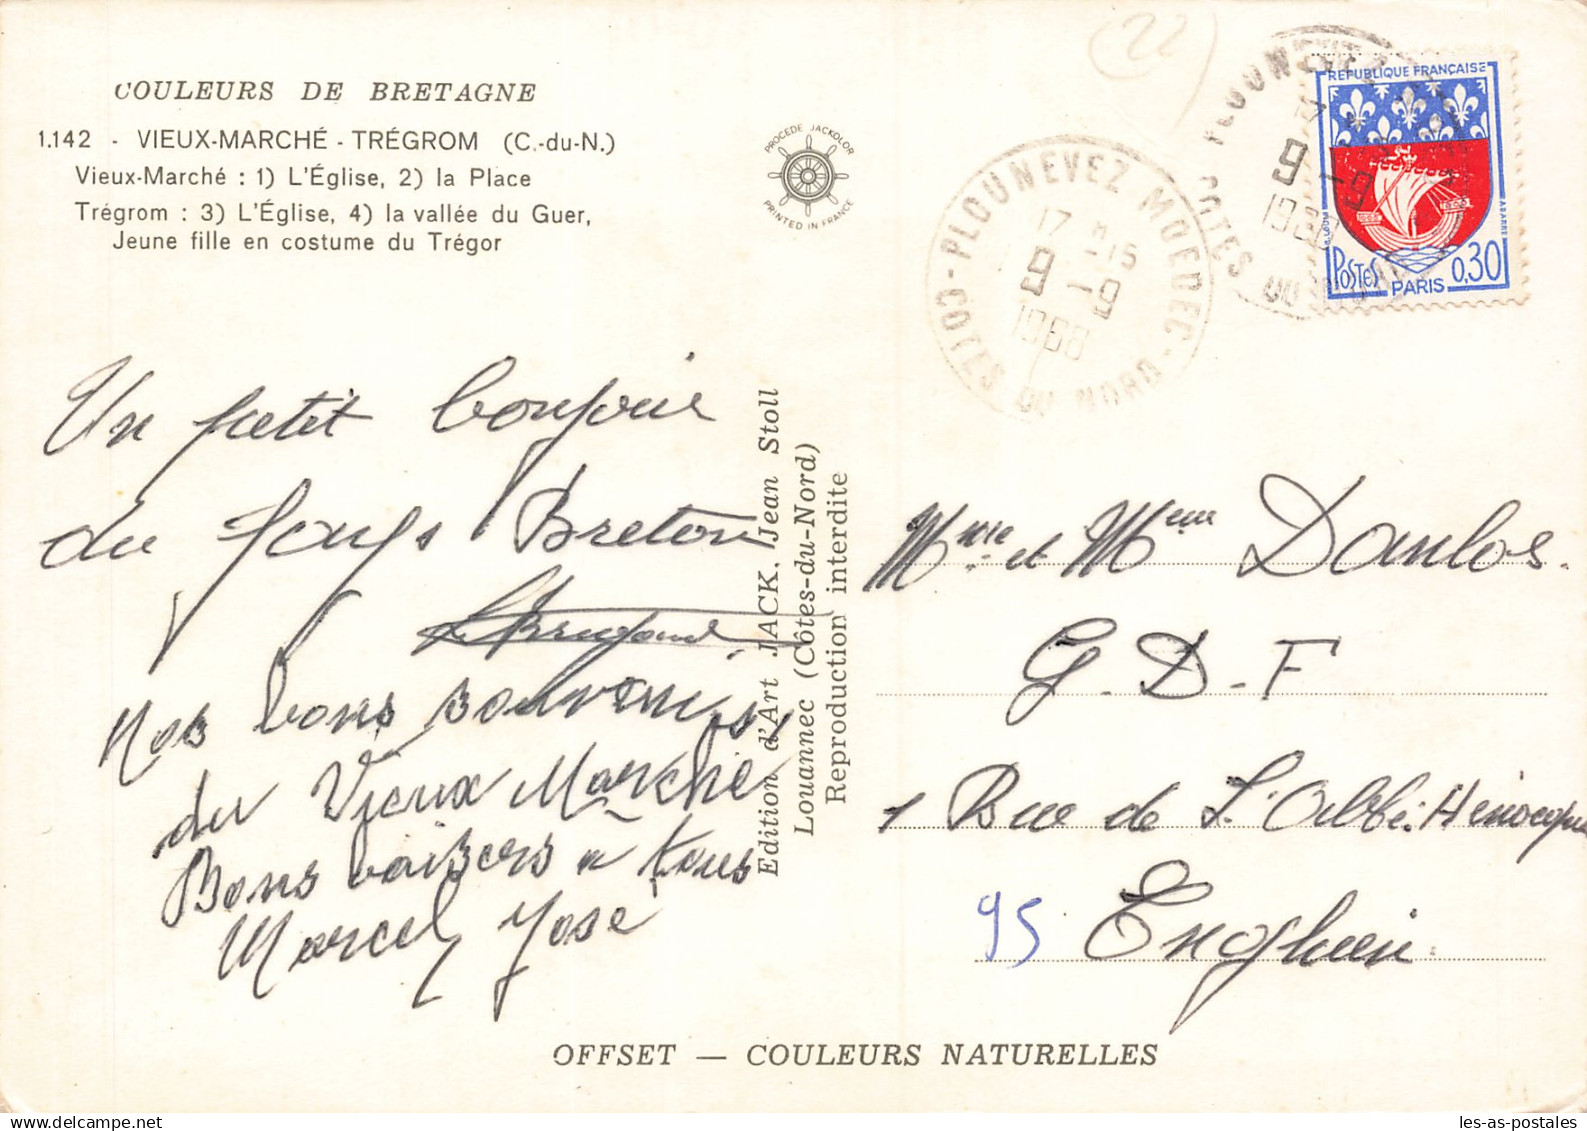 COULEURS DE BRETAGNE
1.142 - VIEUX-MARCHÉ - TRÉGROM (C.-du-N.)
Vieux-Marché : 1) L'Église, 2) la Place
Trégrom : 3) L'Église, 4) la vallée du Guer,
Jeune fille en costume du Trégor
PROCÉDÉ JACKOLOR
PRINTED IN FRANCE
(22)
PLOUNEVEZ MOEDEC - COTES DU NORD -
17 H -15
9 -9
1968
PLOUNEVEZ
COTES DU
9 -9
RÉPUBLIQUE FRANÇAISE
POSTES
PARIS
0,30
Un petit bonjour
du pays Breton
Nos bons souvenirs
du Vieux Marché
Bons baisers a tous
Marcel José
Edition d'Art JACK, Jean Stoll
Louannec (Côtes-du-Nord)
Reproduction interdite
et Mme Danlos.
G.D.F
1 Rue de L'Abbé Hénocque
95 Enghien
OFFSET — COULEURS NATURELLES
les-as-postales